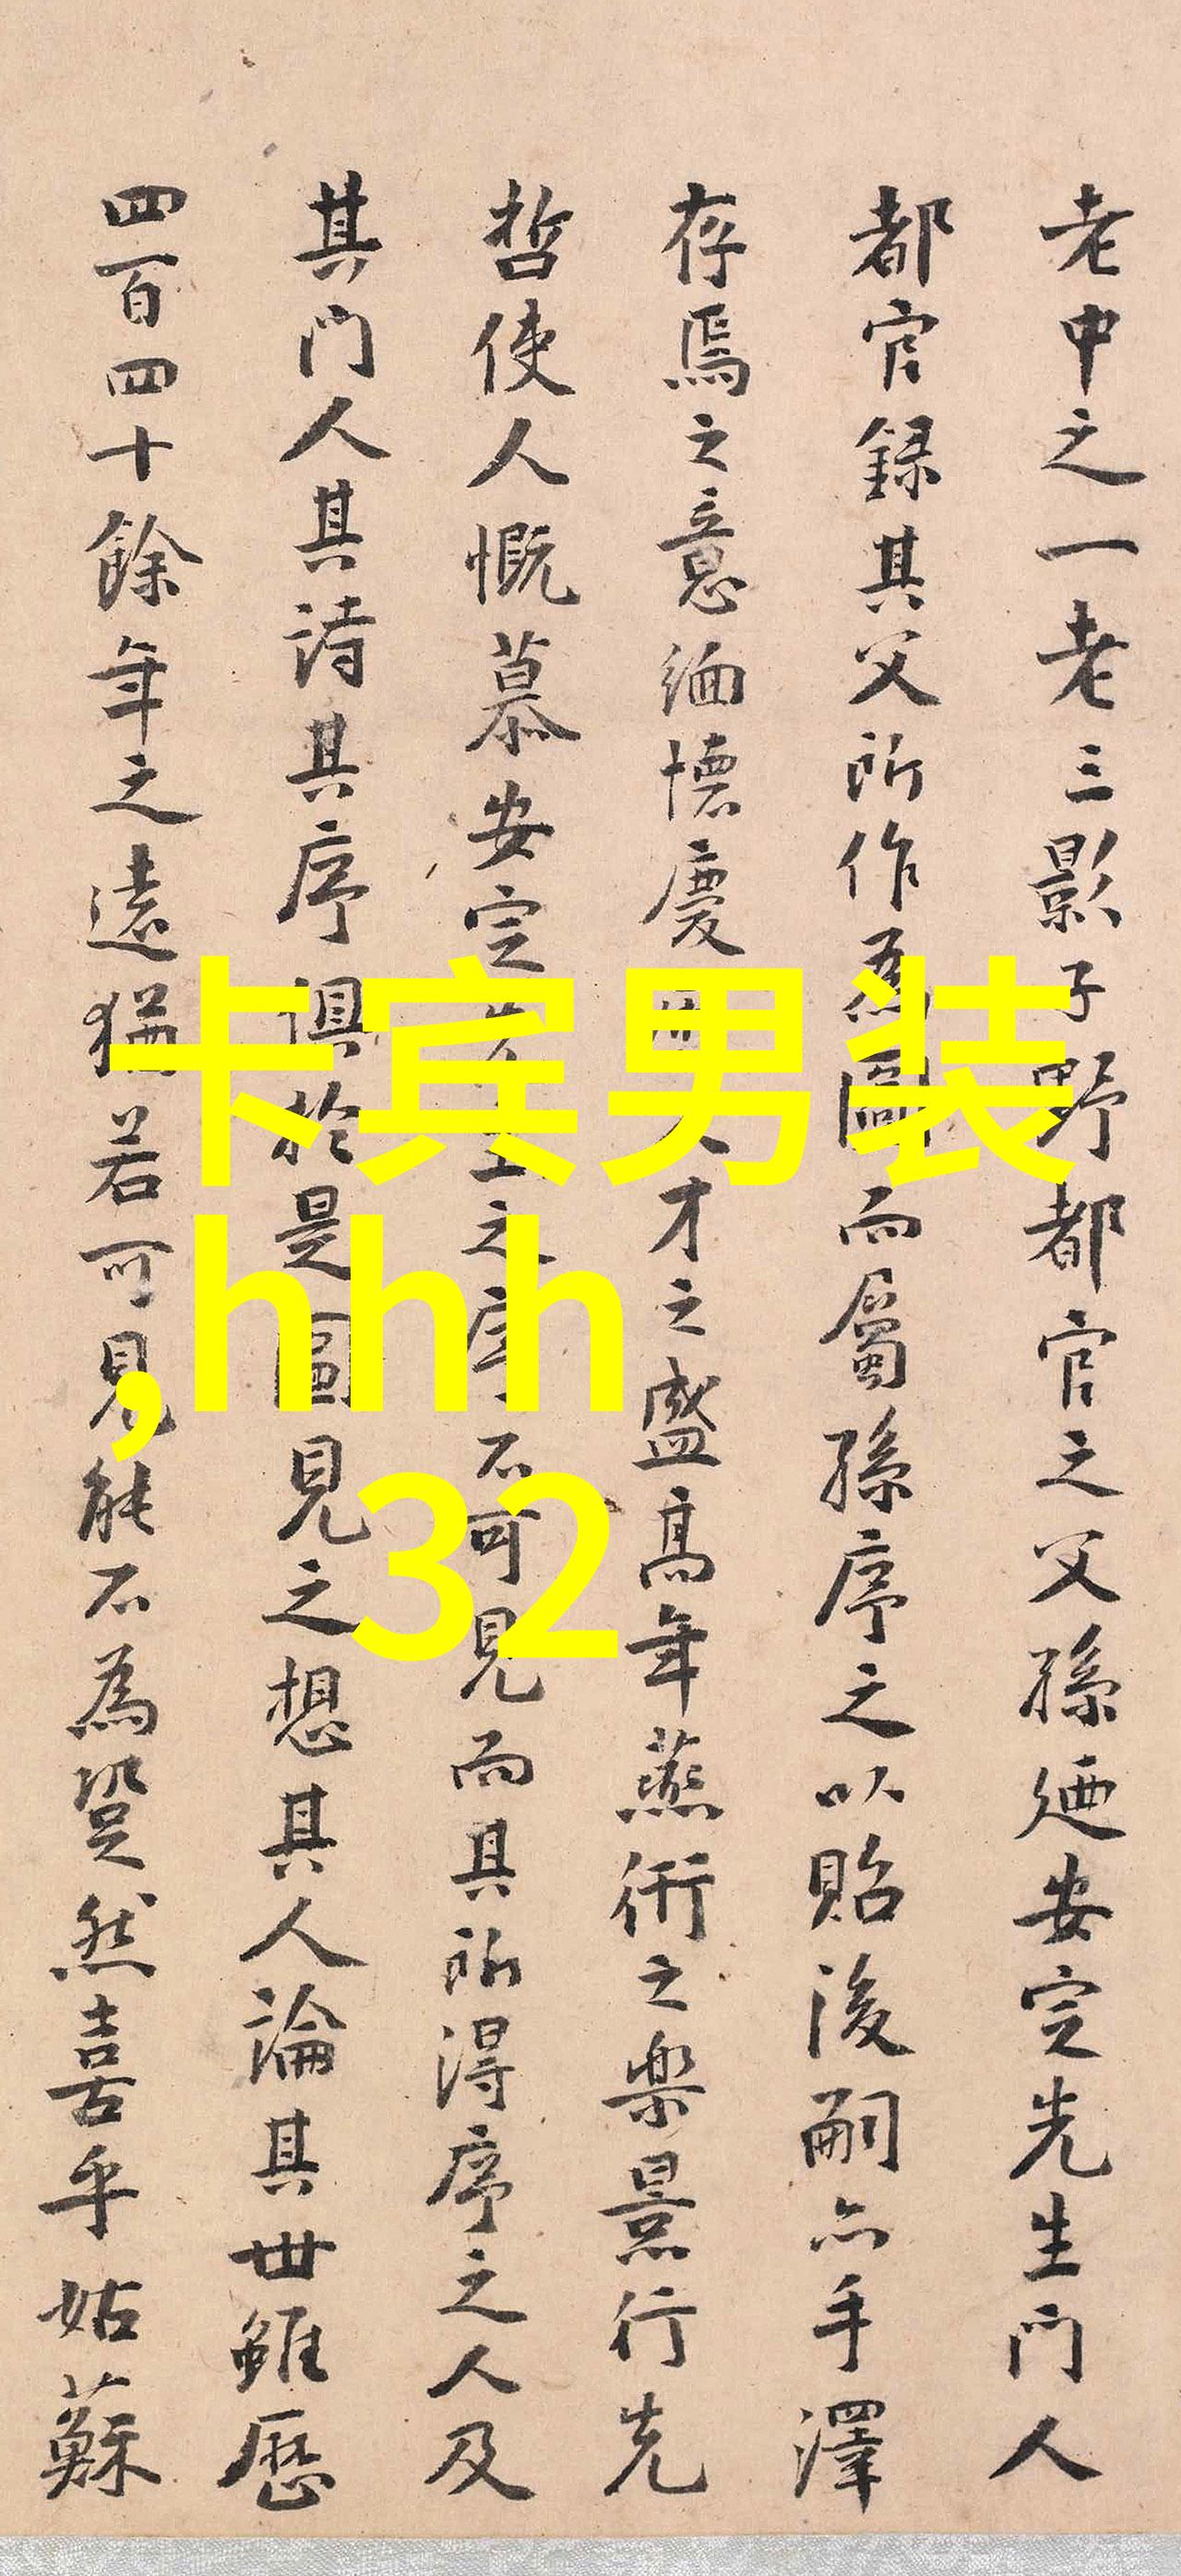 老中之一老三影子野都官之父孫廼安定先生門人
都官録其父所作為圖而屬孫序之以貽後嗣亦手澤
存焉之意緬懷慶才之盛高年燕衎之樂景行先
哲使人慨慕安定之序不可見而其所得序之人及
其門人其詩其序俱於是圖見之想其人論其世雖歷
四百四十餘年之遠猶若可見能不為跫然喜乎姑蘇
卡宾男装
,hhh
32